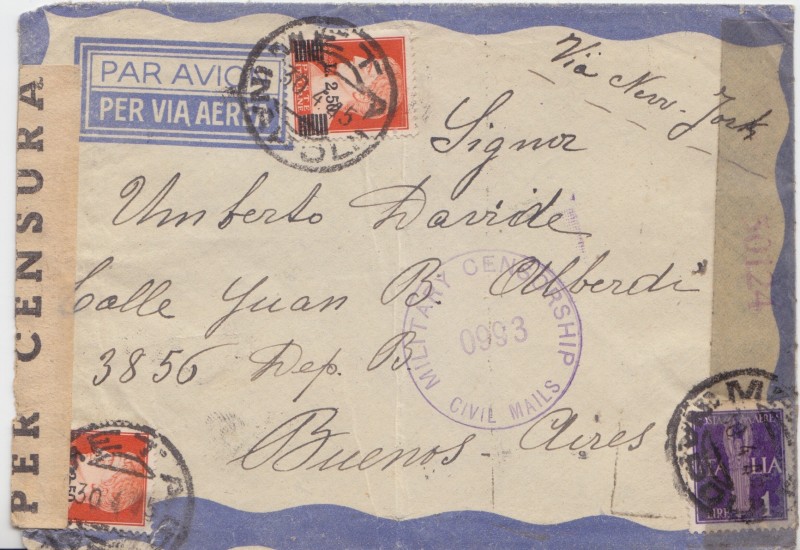 PAR AVION
PER VIA AEREA
L. 2,50
Via New-York
Signor
Umberto Davide
Calle Juan B. Alberdi
3856 Dep. B
Buenos-Aires
PER CENSURA
MILITARY CENSORSHIP
0993
CIVIL MAILS
30124
30
POSTA AEREA
ITALIA
LIRE 1